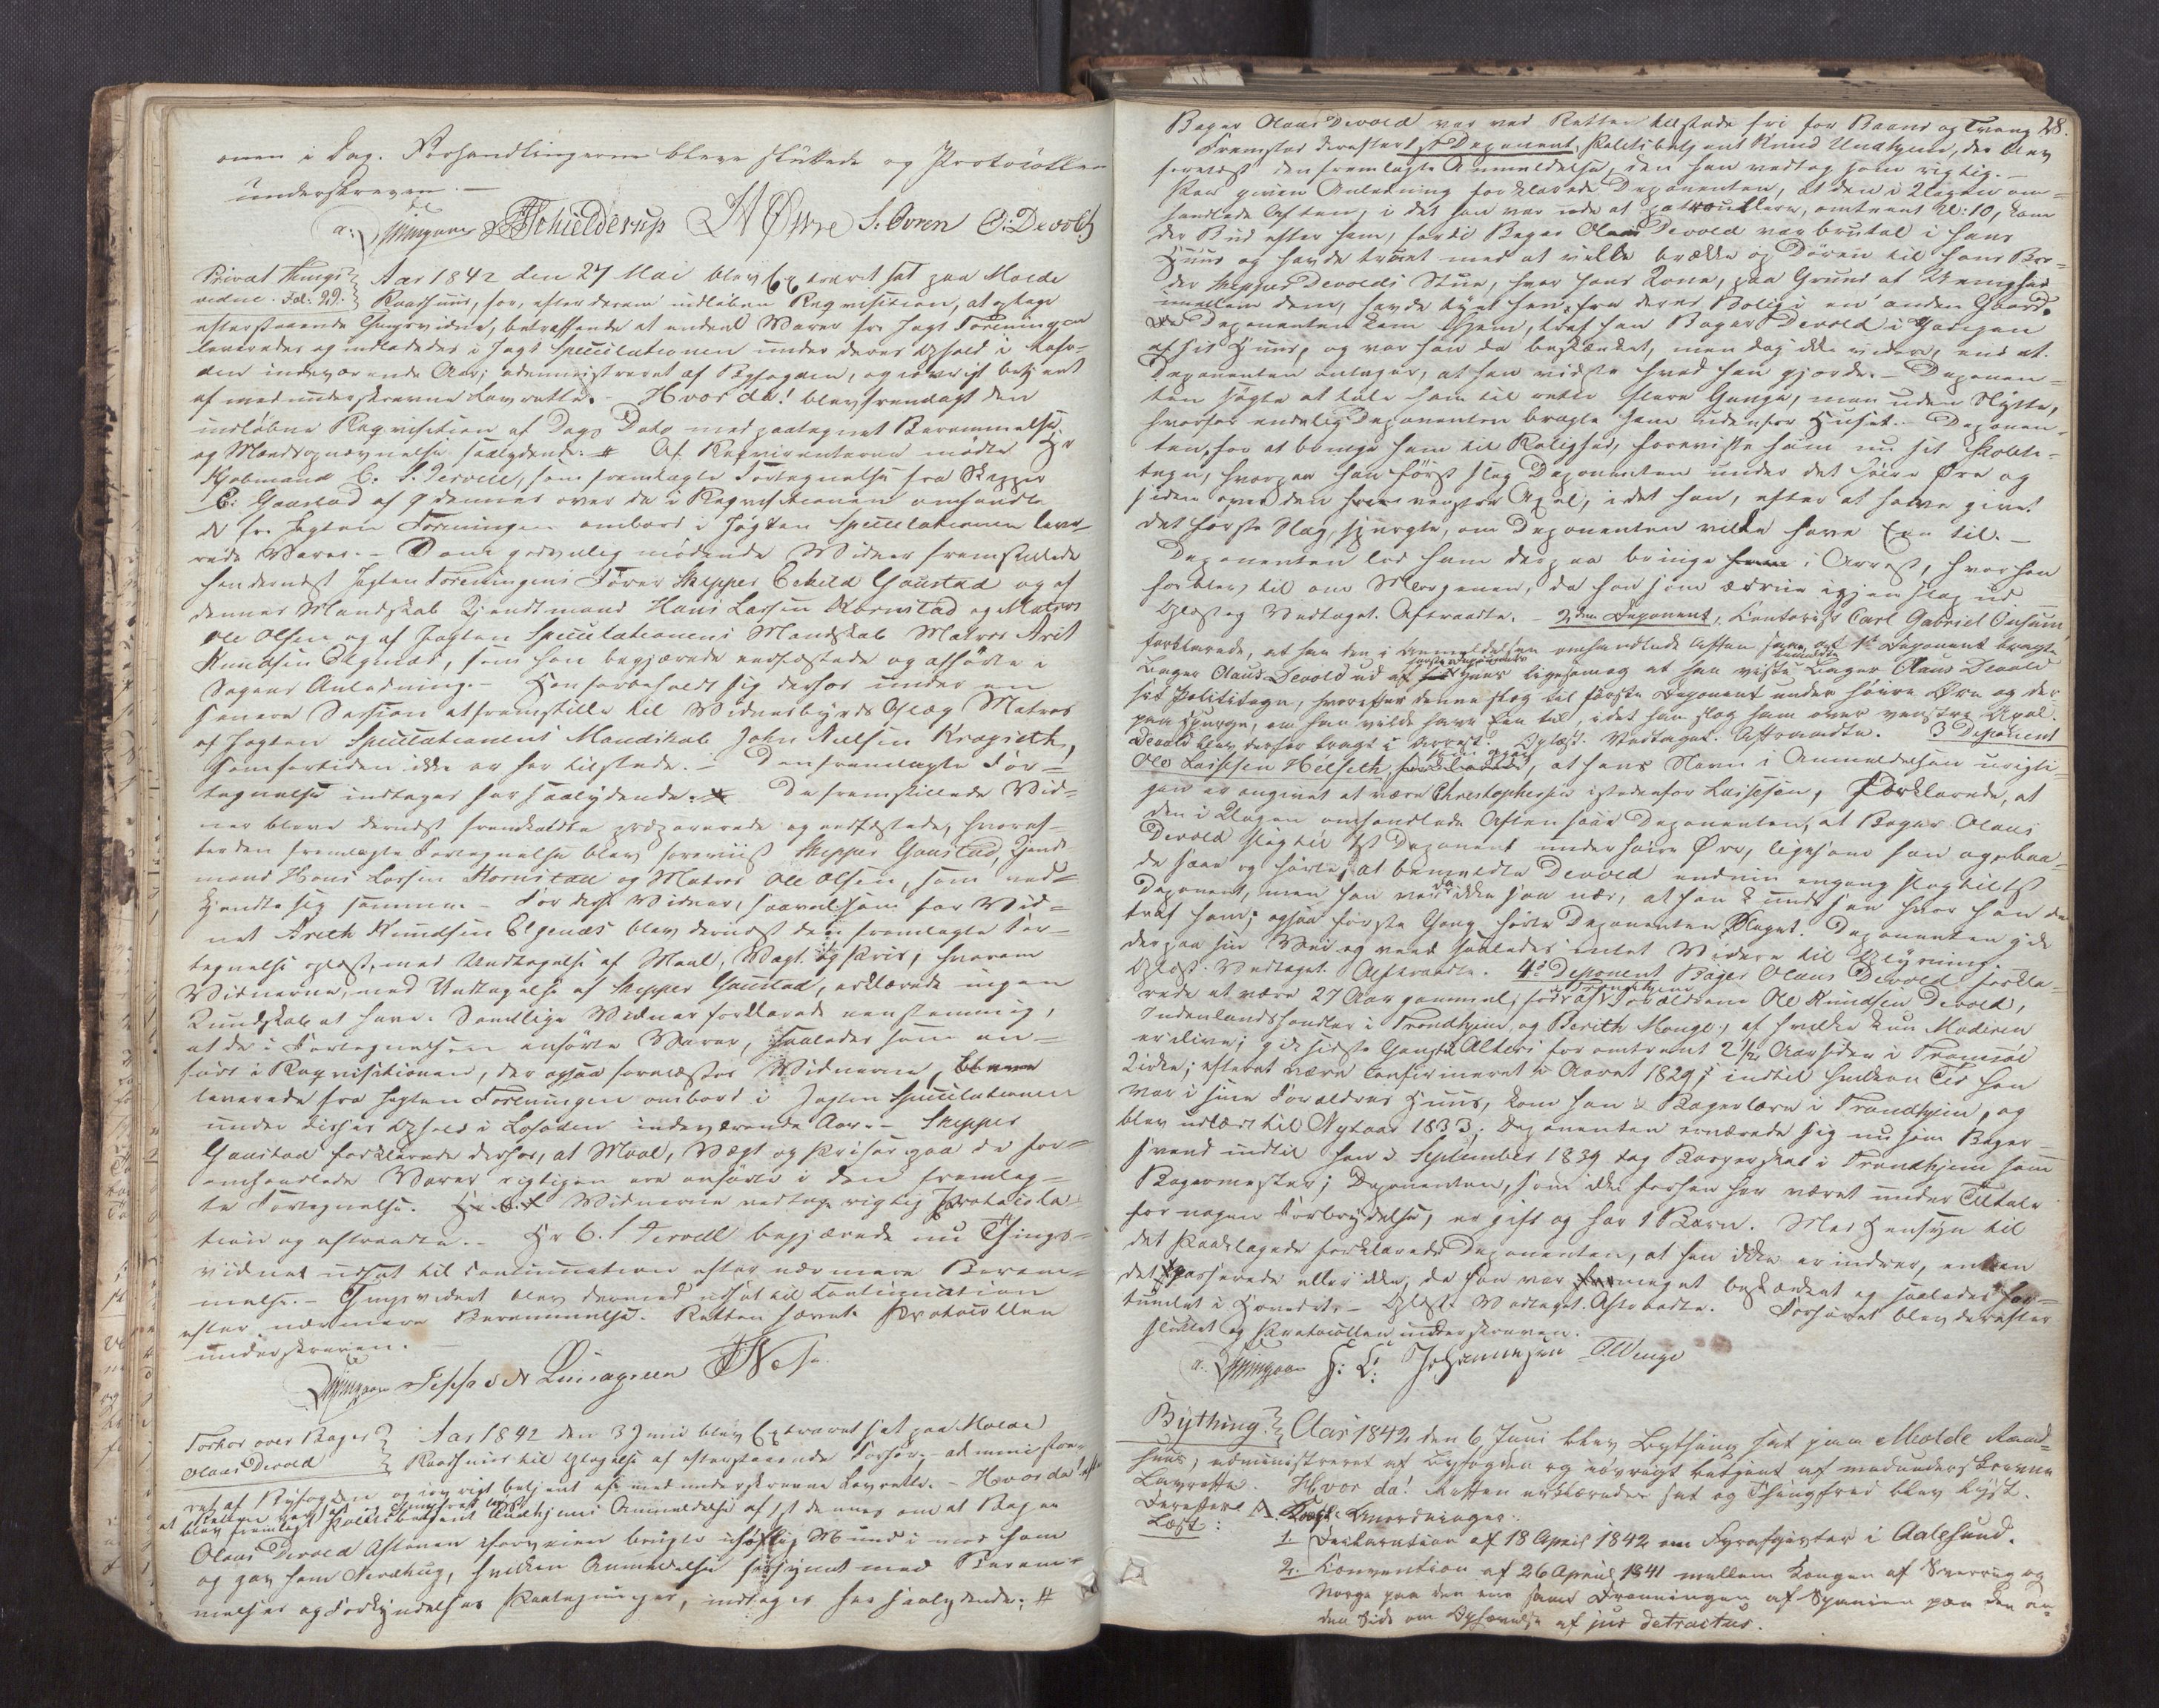 onen i Dag. Forhandlingerne bleve sluttede og Protocollen
underskreven. —
Schielderup Øwre S. Ovren O: Devold
Privat Things- Aar 1842 den 27 Mai blev Extraret sat paa Molde
vidne. Fol. 99. Raadhuus, for, efter derom indløben Reqvisition, at optage
efterstaaende Thingsvidne, betræffende at endeel Varer fra Jagt Foreningen
leveredes og indladedes i Jagt Speculationen under deres Ophold i Lofo-
den indeværende Aar; administreret af Byfogden, og iøvrigt betjent
af medunderskrevne Lavrette. - Hvor da! blev fremlagt den
indløbne Reqvisition af Dags Dato med paategnet Berammelse
og Mandsopnævnelse saalydende: # Af Reqvirenterne mødte Hr
Kjøbmand C. S. Dervell, som fremlagde Fortegnelse fra Skipper
E. Gaustad af  dennes over de i Reqvisitionen omhandle-
de fra Jagten Foreningen ombord i Jagten Speculationen leve-
rede Varer. - Som godvillig mødende Vidner fremstillede
han dernæst Jagten Foreningens Fører Skipper Eckild Gaustad og af
dennes Mandskab Kjendtmand Hans Larsen Kornstad og Matros
Ole Olsen og af Jagten Speculationens Mandskab Matros Arit
Knudsen Elgenæs, som han begjærede eedfæstede og afhørte i
Sagens Anledning. - Han forbeholdt sig derhos under en
senere Session at fremstille til Vidnesbyrds Aflæg Matros
af Jagten Speculationens Mandskab John Nielsen Kragseth,
som for tiden ikke er her tilstede. - Den fremlagte For-
tegnelse indtages her saalydende: # De fremstillede Vid-
ner bleve dernæst fremkaldte præparerede og eedfæstede, hvoref-
ter den fremlagte Fortegnelse blev foreviist Skipper Gaustad, Kjendt
mand Hans Larsen Kornstad og Matros Ole Olsen, som ved-
kjendte sig samme. - For disse Vidner, saavelsom for Vid-
net Areth Knudsen Elgenæs blev dernæst den fremlagte For-
tegnelse oplæst, med Undtagelse af Maal, Vægt og Priis, hvorom
Vidnerne, med Undtagelse af Skipper Gaustad, erklærede ingen
Kundskab at have. Samtlige Vidner forklarede eenstemmig,
at de i Fortegnelsen anførte Varer, saaledes som an-
ført i Reqvisitionen, der ogsaa forelæstes Vidnerne, bleve
leverede fra Jagten Foreningen ombord i Jagten Speculationen
under disses Ophold i Lofoden indeværende Aar. - Skipper
Gaustad forklarede derhos, at Maal, Vægt og Priser paa de for-
omhandlede Varer rigtigen ere anførte i den fremlag-
te Fortegnelse. Vidnerne vedtog rigtig Protocola-
tion og aftraadte. - Hr C. S. Dervell begjærede nu Things-
vidnet udsat til Continuation efter nærmere Beram-
melse. - Thingsvidnet blev dermed udsat til Continuation
efter nærmere Berammelse. Retten hævet. Protocollen
underskreven. —
Forhør over Bager Aar 1842 den 3 Junii blev Extraret sat paa Molde
Olaus Devold Raadhuus til Optagelse af efterstaaende Forhør, administre-
ret af Byfogden og iøvrigt betjent af medunderskrevne Lavrette. - Hvor da! efter
at Retten var sat og
blev fremlagt Politiebetjent Undhjems Anmeldelse af 1st dennes om at Bager
Olaus Devold Aftenen forveien brugte uhøflig Mund imod ham
og gav ham Næsehug, hvilken Anmeldelse forsynet med Beram-
melses og Forkyndelses Paategninger, indtages her saalydende: #
28.
Bager Olaus Devold var ved Retten tilstede fri for Baand og Tvang
Fremstod derefter 1ste Deponent, Politibetjent Knud Undhjem, der blev
forelæst den fremlagte Anmeldelse, den han vedtog som rigtig. -
Paa given Anledning forklarede Deponenten, at den i Klagen om-
handlede Aften, i det han var ude at patroullere, omtrent Kl: 10, kom
der Bud efter ham, fordi Bager Olaus Devold var brutal i hans
Huus og havde truet med at ville brække op Døren til hans Bro-
der Skipper Devolds Stue, hvor hans Kone, paa Grund af Uenighed
imellem dem, havde tyet hen fra deres Bolig i en anden Gaard.
Da Deponenten kom hjem, traf han Bager Devold i Gangen
af sit Huus, og var han da beskjænket, men dog ikke videre, end at
Deponenten antager, at han vidste hvad han gjorde. - Deponen-
ten søgte at tale ham til rette flere Gange, men uden Nytte,
hvorfor endelig Deponenten bragte ham udenfor Huset. Deponen-
ten, for at bringe ham til Rolighed, foreviste ham nu sit Politi-
tegn, hvorpaa han først slog Deponenten under det høire Øre og
siden over den venstre Axel, i det han, efter at have givet
det første Slag, spurgte, om Deponenten vilde have Een til. -
Deponenten lod ham derpaa bringe i Arrest, hvor han
forblev til om Morgenen, da han som ædrue igjen slap ud
Oplæst Vedtaget. Aftraadte. - 2den Deponent, Contorist Carl Gabriel Onsum,
forklarede, at han den i Anmeldelsen omhandlede Aften saae, at 1ste Deponent bragte
Bager Olaus Devold ud af første Deponents Huus ligesom og at han viste bemeldte Bager Olaus Devold
sit Polititegn, hvorefter denne slog til første Deponent under høire Øre og der
paa spurgte, om han vilde have Een til, idet han slog ham over venstre Axel.
Devold blev derfor bragt i Arrest. Oplæst. Vedtaget. Aftraadte. 3 Deponent
Ole Lassesen Hilseth, at hans Navn i Anmeldelsen urigti-
gen er angivet at være Christophersen istedenfor Lassesen, Forklarede, at
den i Klagen omhandlede Aften saae Deponenten, at Bager Olaus
Devold slog til 1st Deponent under høire Øre, ligesom han ogsaa baa-
de saae og hørte, at bemeldte Devold endnu engang slog til 1st
Deponent, men han var da ikke saa nær, at han kunde see hvor han da
traf ham; ogsaa første Gang hørte Deponenten Slaget. Deponenten gik
derpaa sin Vei og veed saaledes intet Videre til Oplysning
Oplæst. Vedtaget. Aftraadte. 4de Deponent Bager Olaus Devold forkla-
rede at være 27 Aar gammel, født i Trondhjem af Forældrene Ole Knudsen Devold,
Indenlandshandler i Trondhjem, og Berith Monge, af hvilke kun Moderen
er ilive; gik sidste Gang til Alters for omtrent 2 1/2 Aar siden i Tromsøe
Kirke; efter at være confirmeret i Aaret 1829, indtil hvilken Tid han
var i sine Forældres Huus, kom han i Bagerlære i Trondhjem, og
blev udlært til Nytaar 1833; Deponenten ernærede sig nu som Bager-
svend indtil han i September 1839 tog Borgerskab i Trondhjem som
Bagermester; Deponenten, som ikke forhen har været under Tiltale
for nogen Forbrydelse, er gift og har 1 Barn. Med Hensyn til
det Paaklagede forklarede Deponenten, at han ikke erindrer, enten
det passerede eller ikke, da han var meget beskjænket og saaledes for-
tumlet i Hovedet. - Oplæst Vedtaget. Aftraadte. Forhøret blev derefter
sluttet og Protocollen underskreven.
H: L: Johannesen O. Wenge
Bything. Aar 1842 den 6 Juni blev Bything sat paa Molde Raad-
huus, administreret af Byfogden og iøvrigt betjent af medunderskrevne
Lavrette. Hvor da! Retten erklæredes sat og Thingfred blev lyst.
Derefter A. Anordninger.
Læst: 1. Declaration af 18 April 1842 om Fyrafgifter i Aalesund.
2. Convention af 26 April 1841 mellem Kongen af Sverrig og
Norge paa den ene samt Dronningen af Spanien paa den an-
den Side om Ophævelse af jus detractus.